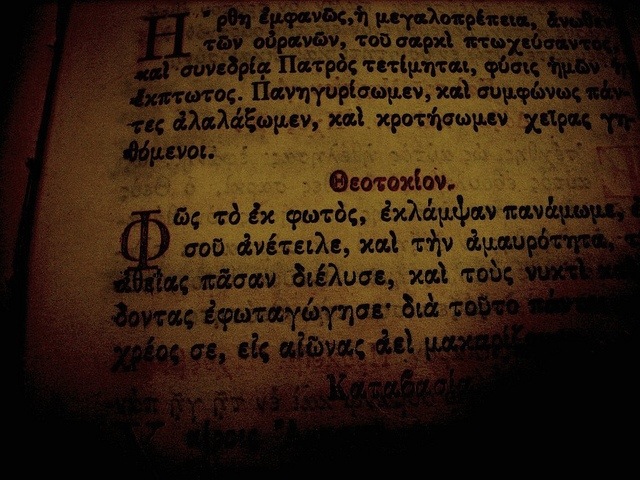 Ἤρθη ἐμφανῶς, ἡ μεγαλοπρέπεια, ἄνωθεν
τῶν οὐρανῶν, τοῦ σαρκὶ πτωχεύσαντος,
καὶ συνεδρία Πατρὸς τετίμηται, φύσις ἡμῶν ἡ
ἐκπτωτος. Πανηγυρίσωμεν, καὶ συμφώνως πάν-
τες ἀλαλάξωμεν, καὶ κροτήσωμεν χεῖρας γη-
θόμενοι.
Θεοτοκίον.
Φῶς τὸ ἐκ φωτὸς, ἐκλάμψαν πανάμωμε,
σοῦ ἀνέτειλε, καὶ τὴν ἀμαυρότητα,
ἀθεΐας πᾶσαν διέλυσε, καὶ τοὺς νυκτὶ
δοντας ἐφωταγώγησε· διὰ τοῦτο
χρέος σε, εἰς αἰῶνας ἀεὶ
Καταβασία